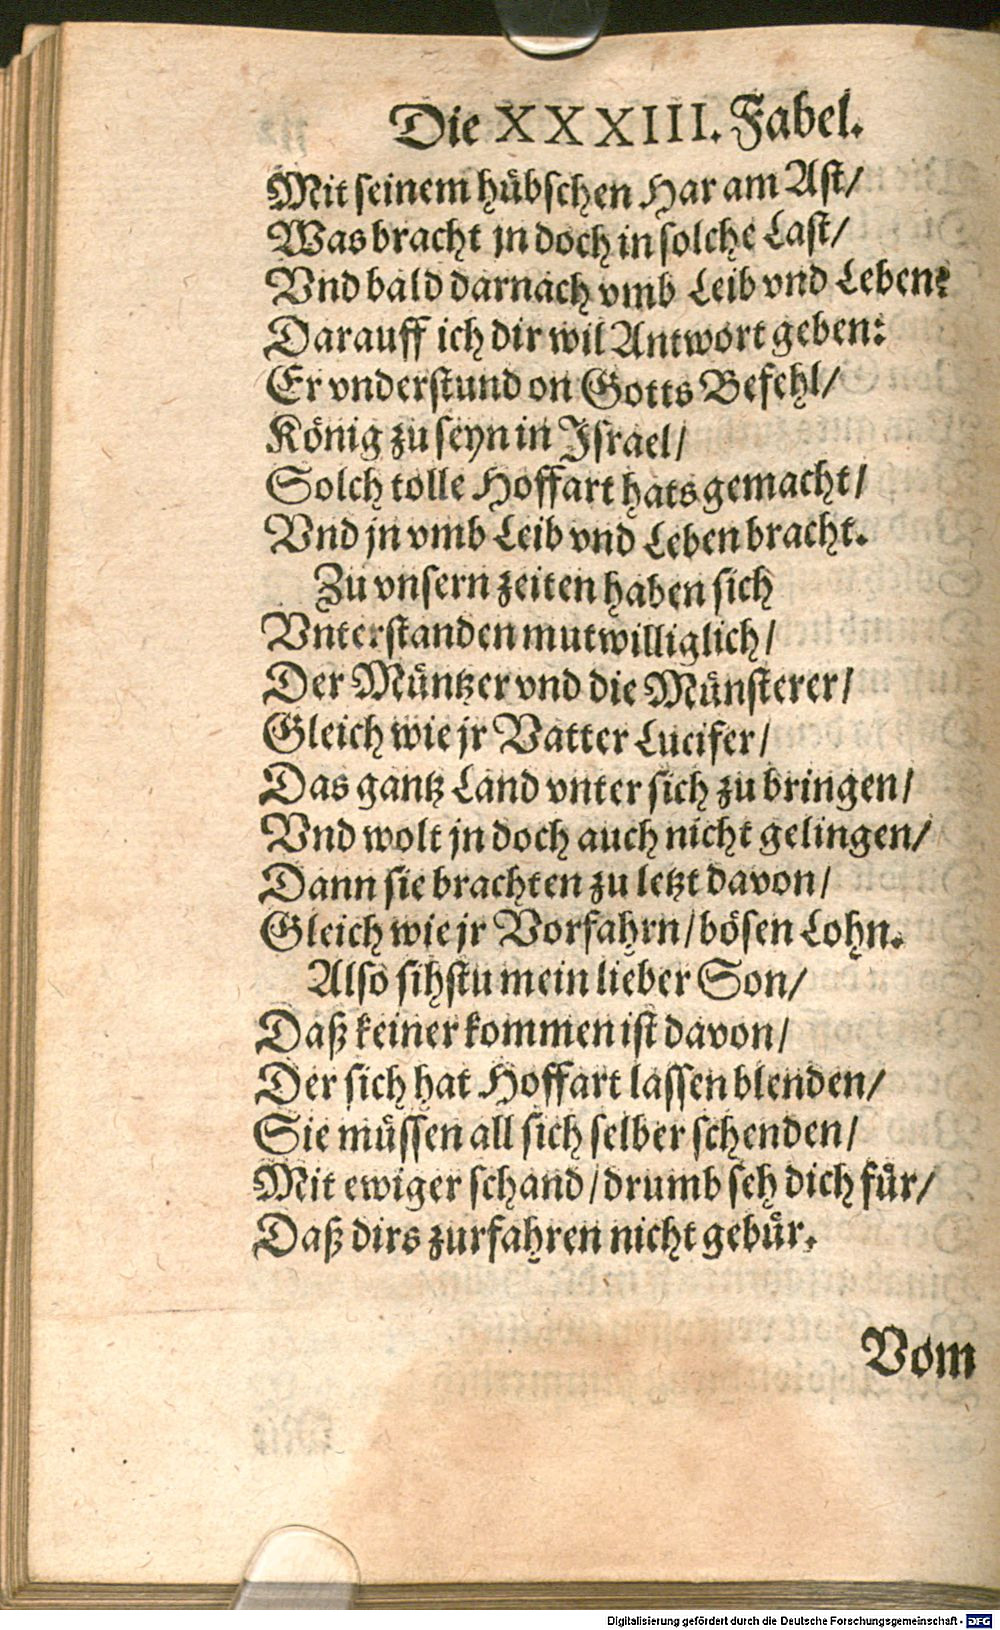 Die XXXIII. Fabel.
Mit seinem hübschen Har am Ast/
Was bracht jn doch in solche Last/
Vnd bald darnach vmb Leib vnd Leben?
Darauff ich dir wil Antwort geben:
Er vnderstund on Gotts Befehl/
König zu seyn in Israel/
Solch tolle Hoffart hats gemacht/
Vnd jn vmb Leib vnd Leben bracht.
Zu vnsern zeiten haben sich
Vnterstanden mutwilliglich/
Der Müntzer vnd die Münsterer/
Gleich wie jr Vatter Lucifer/
Das gantz Land vnter sich zu bringen/
Vnd wolt jn doch auch nicht gelingen/
Dann sie brachten zu letzt davon/
Gleich wie jr Vorfahrn/bösen Lohn.
Also sihstu mein lieber Son/
Daß keiner kommen ist davon/
Der sich hat Hoffart lassen blenden/
Sie müssen all sich selber schenden/
Mit ewiger schand/drumb seh dich für/
Daß dirs zurfahren nicht gebür.
Vom
Digitalisierung gefördert durch die Deutsche Forschungsgemeinschaft - DFG